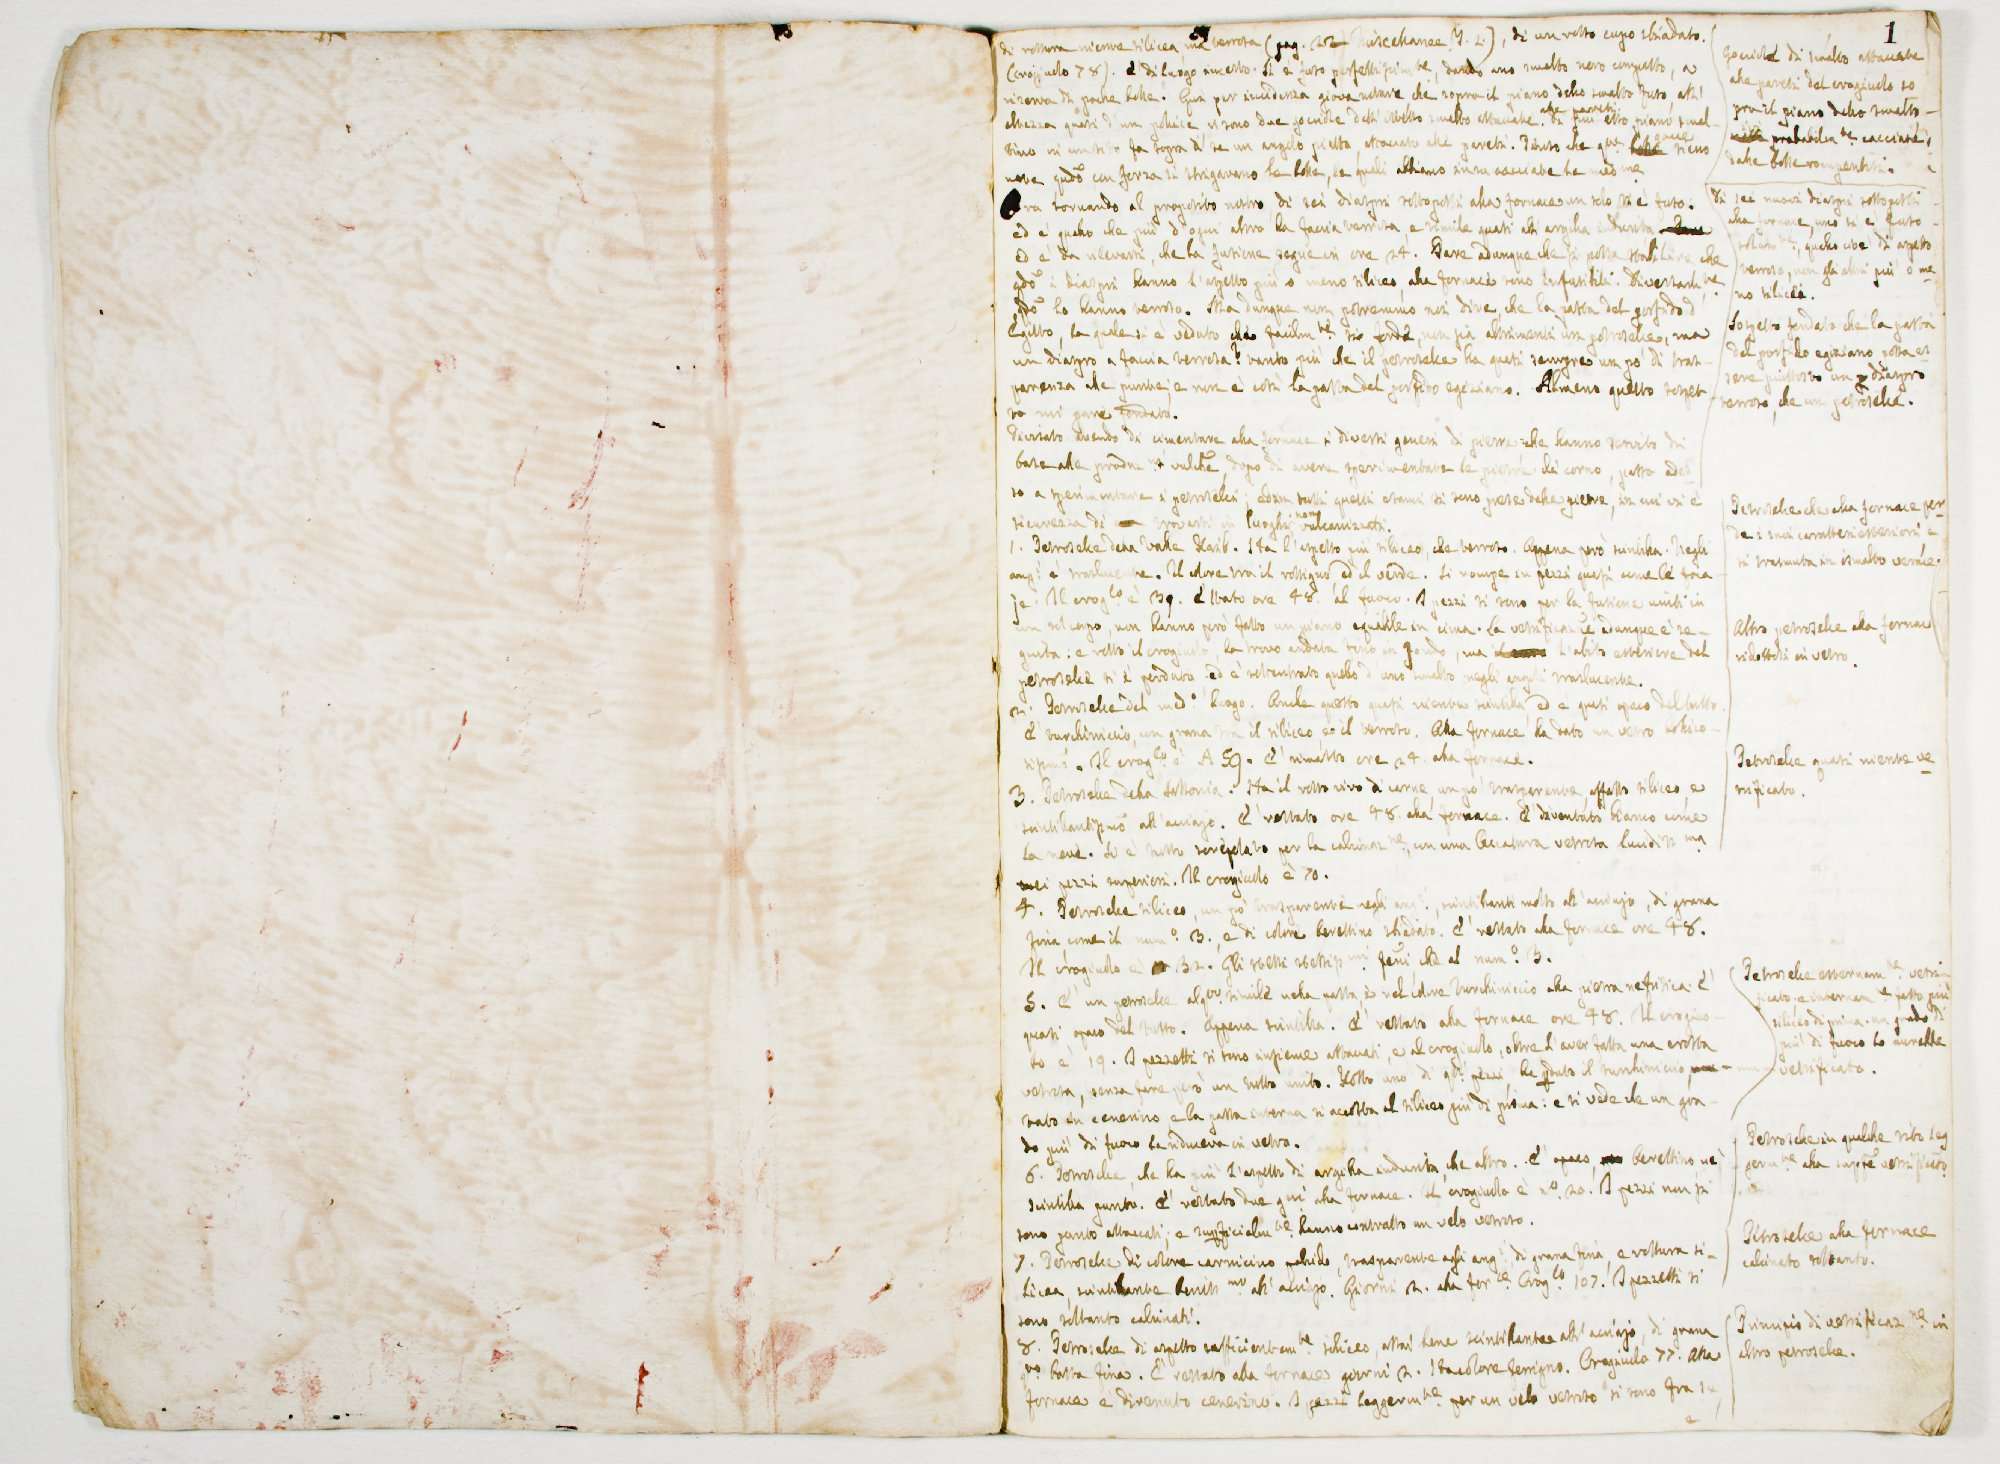 1
di rottura niente silicea ma terrosa (pag. 22 Miscellanee Y. 2.), di un rosso cupo sbiadato.
(crogiuolo 78). È di luogo incerto. Si è fuso perfettissim.te, dando uno smalto nero compatto, a
riserva di poche bolle. Qui per incidenza giova notare che sopra il piano dello smalto fuso, all'
altezza quasi d'un pollice vi sono due gocciole dell'istesso smalto attaccate alle pareti. Di più esto piano smal-
tino in un sito fa sopra di se un angelo attaccato alle pareti. Dirsto che
nate qudo con forza si strigavano le bolle, le quali abbiano in su cacciate la med.me
Ora tornando al proposito nostro, di sei diaspri sottoposti alla fornace un solo si è fuso.
ed è quello che più d'ogni altro ha faccia terrosa e simile quasi all'argilla indurita
Ed è da rilevarsi, che la fusione segue in ore 24. Pare adunque che si possa stabilire che
qdo i diaspri hanno l'aspetto più o meno siliceo, alla fornace sono infusibili. Diversam.te
qdo lo hanno terroso. Ma dunque non potremmo noi dire, che la pasta del porfido d'
Egitto, la quale si è veduto che facilm.te si fonde, non sia altrimenti un petroselce, ma
un diaspro a faccia terrosa? tanto più che il petroselce ha quasi sempre un po' di tras-
parenza alle punte, e non è così la pasta del porfido egiziano. Almeno questo sospet-
to mi pare fondato.
Divisato avendo di cimentare alla fornace i diversi generi di pietre che hanno servito di
base alle produz.ni vulche, dopo di avere sperimentate le pietre di corno, passo ades-
so a sperimentare i petroselci; ed in tutti questi esami si sono prese delle pietre, in cui vi è
sicurezza di trovarsi in luoghi non vulcanizzati.
1. Petroselce della Valle . Ha l'aspetto più siliceo, che terroso. Appena però scintilla. Negli
ang.i è traslucente. Il colore tra il rossigno ed il verde. Si rompe in pezzi quasi come le foca-
je. Il crog.lo è 39. È stato ore 48. al fuoco. I pezzi si sono per la fusione uniti in
un sol corpo, non hanno però fatto un piano equabile in cima. La vetrificaz.ne adunque è se-
guita: e rotto il crogiuolo, la trovo andata sino in fondo, ma l'abito esteriore del
petroselce si è perduto ed è sottentrato quello d'uno smalto negli angoli traslucente.
2. Petroselce del med.o luogo. Anche questo quasi niente scintilla ed è quasi opaco del tutto.
È turchiniccio, con grana tra il siliceo e il terroso. Alla fornace ha dato un vetro
. Il crog.lo è A 59. È rimasto ore 24. alla fornace.
3. Petroselce della Sassonia. Ha il rosso vivo di carne, un po' trasparente, affatto siliceo, e
scintillantissimo all'acciajo. È restato ore 48. alla fornace. È diventato bianco come
la neve. Si è tutto screpolato per la calcinaz.ne, con una leccatura vetrosa lucidiss.ma
nei pezzi superiori. Il crogiuolo è 70.
4. Petroselce siliceo, un po' trasparente negli ang.i, scintillanti molto all'acciajo, di grana
fina come il num.o 3., e di colore berettino sbiadato. È restato alla fornace ore 48.
Il crogiuolo è 32. Gli stessi stessiss.mi feni, che al num.o 3.
5. È un petroselce alq.to simile nella pasta, e nel colore turchiniccio alla pietra nefritica. È
quasi opaco del tutto. Appena scintilla. È restato alla fornace ore 48. Il crogiuo-
lo è 19. I pezzetti si sono insieme attaccati, e al crogiuolo, oltre l'aver fatta una crosta
vetrosa, senza fare però un tutto unito. Rotto uno di qti pezzi, ha pduto il turchiniccio,
tato in cenerino e la pasta interna si accosta al siliceo più di prima: e si vede che un gra-
do più di fuoco la riduceva in vetro.
6. Petroselce, che ha più l'aspetto di argilla indurita che altro. È opaco, berettino nè
scintilla punto. È restato due gni alla fornace. Il crogiuolo è n.o 20. I pezzi non si
sono punto attaccati; e supficialm.te hanno contratto un velo vetroso.
7. Petroselce di colore carnicino pallido, trasparente agli ang.i di grana fina, e rottura si-
licea, scintillante beniss.mo all'acciajo. Giorni 2. alla for.ce Crog.lo 107. I pezzetti si
sono soltanto calcinati.
8. Petroselce di aspetto sufficientem.te siliceo, assai bene scintillante all'acciajo, di grana
q.to basta fina. È restato alla fornace giorni 2. Ha colore ferrigno. Crogiuolo 77. Alla
fornace è divenuto cenerino. I pezzi leggerm.te per un velo vetroso si sono fra se,
e
Gocciole di smalto attaccate
alle pareti del crogiuolo so
pra il piano dello smalto
probabilm.te cacciate
dalle bolle rompentisi.
Di sei nuovi diaspri sottoposti
alla fornace, uno si è fuso
soltan.to, quello cioè di aspetto
terroso, non gli altri più o me
no silicei.
Sospetto fondato che la pasta
del porfido egiziano possa es-
sere piuttosto un diaspro
terroso, che un petroselce.
Petroselce che alla fornace per-
de i suoi caratteri esteriori e
si trasmuta in smalto verace.
Altro petroselce alla fornace
ridottosi in vetro.
Petroselce quasi niente ve-
trificato.
Petroselce esternam.te vetri-
ficato e internam.te fatto più
siliceo di prima. un grado di
più di fuoco lo avrebbe
vetrificato.
Petroselce in qualche sito leg
germ.te alla supfe vetrificato
Petroselce alla fornace
calcinato soltanto.
Principio di vetrificaz.ne in
altro petroselce.